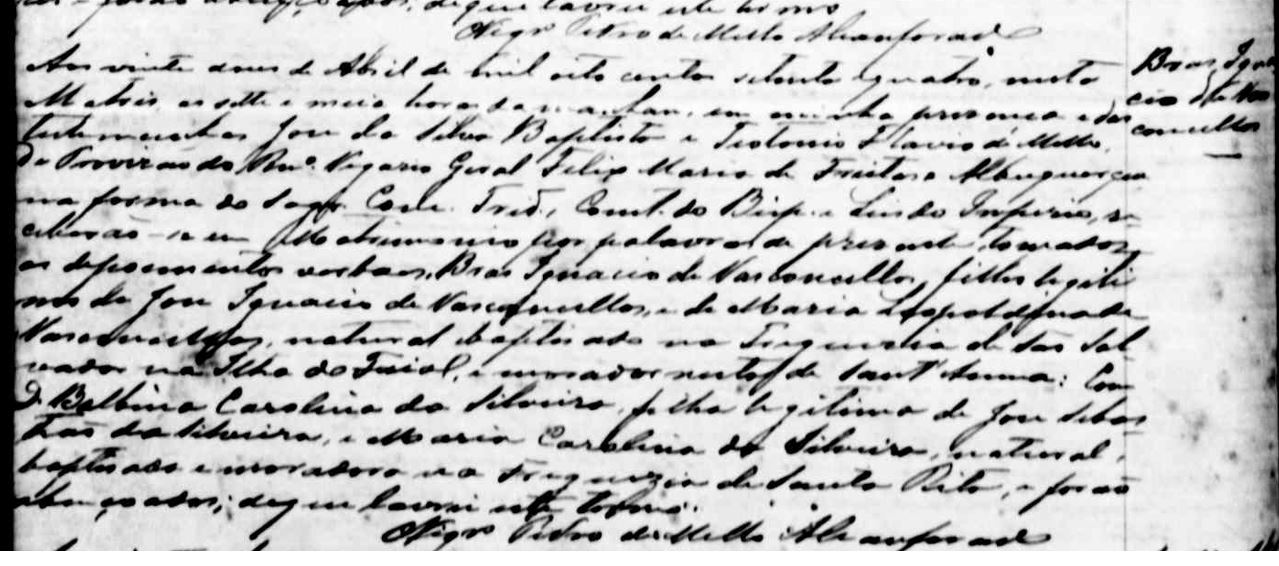 de que lavrei este termo
Vigrº Pedro de Mello Alcanforado
Aos vinte dous de Abril de mil oito centos setenta e quatro, nesta
Matriz, as sette e meia horas da manhan, em minha presença e das
testemunhas Jose da Silva Baptista e Teotonio Flavio de Mello,
de Provizão do Rmº. Vigario Geral Felix Maria de Freitas e Albuquerque
na forma do Sagr. Conc. Trid., Const. do Bisp. e Leis do Imperio, re
ceberão-se em Matrimonio por palavras de presente, tomados
os depoimentos verbaes, Bras Ignacio de Vasconcellos, filho legiti
mo de Jose Ignacio de Vasconcellos, e de Maria Leopoldina de
Vasconcellos, natural e baptisado na Freguezia de São Sal
vador na Ilha do Faial, e morador nesta de Sant'Anna: Com
D. Balbina Carolina da Silveira, filha legitima de Jose Sebas
tião da Silveira, e Maria Carolina da Silveira, natural,
baptisada e moradora na Freguezia de Santa Rita, e forão
abençoados; de que lavrei este termo.
Vigrº Pedro de Mello Alcanforado
Bras Igna
cio de Vas
concellos